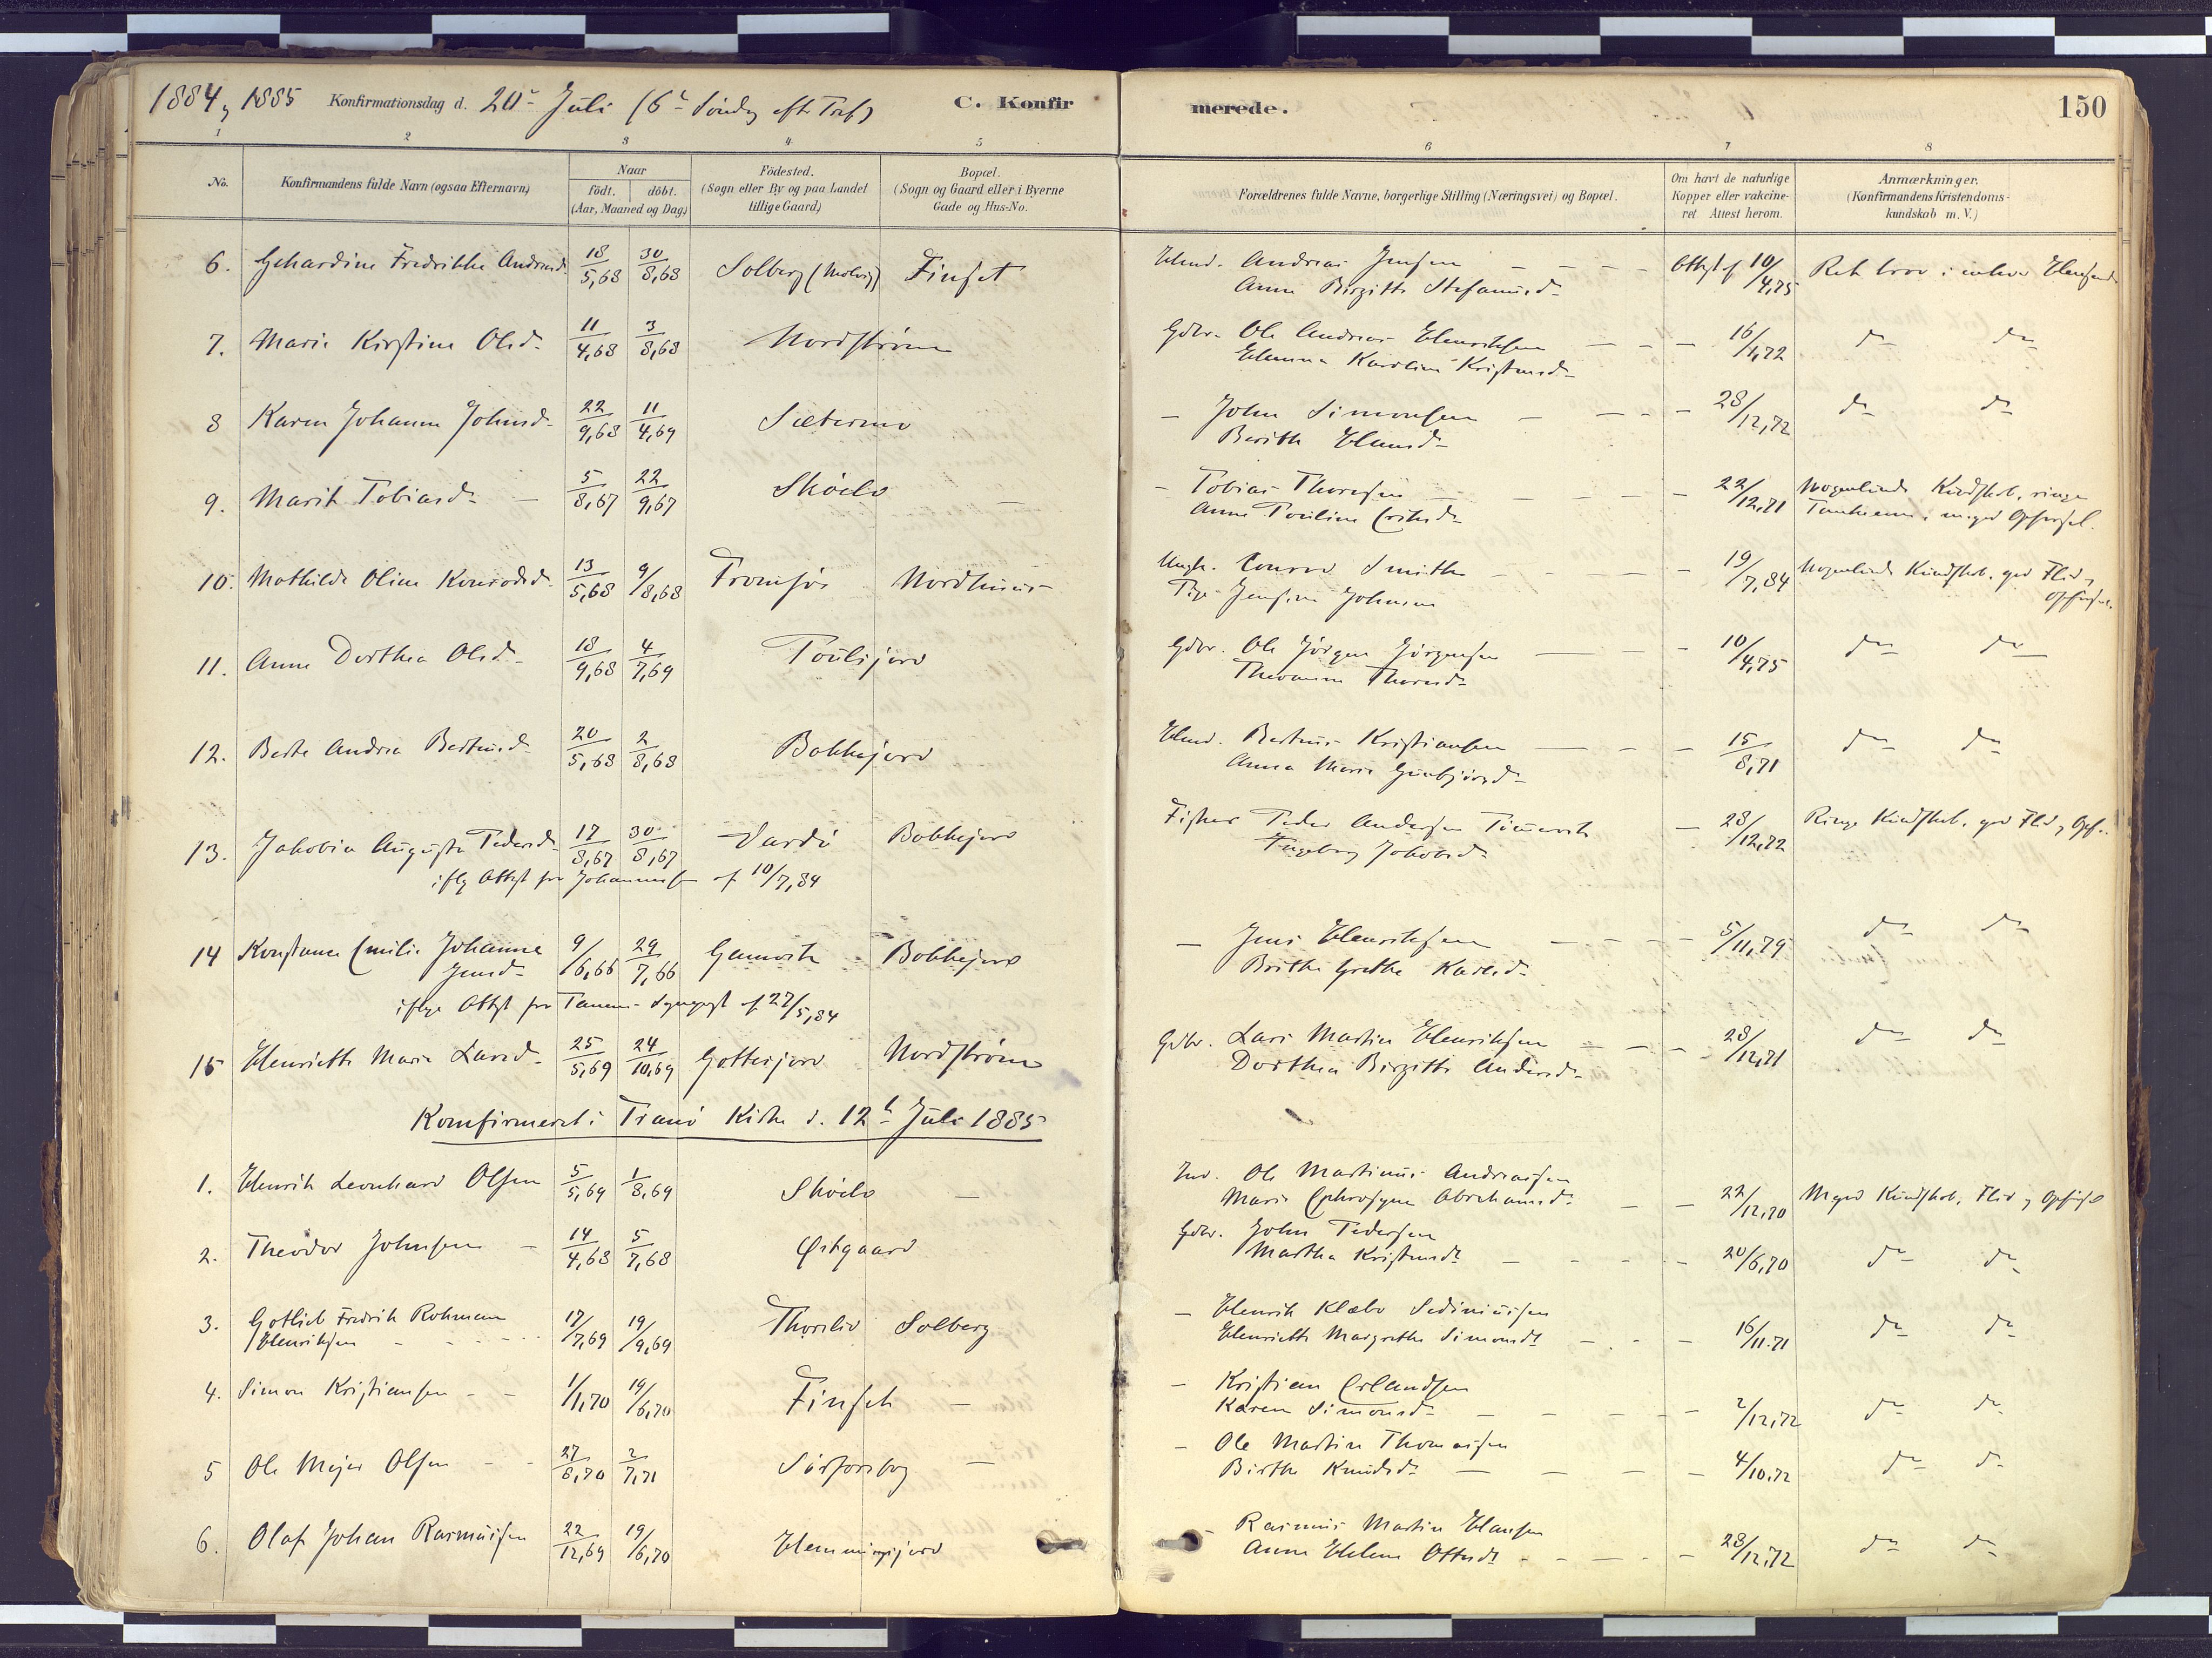 1884, 1885 Konfirmationsdag d. 20de Juli (6te Søndag eft. Tref.) C. Konfirmerede. 150
1 2 3 4 5 6 7 8
No.
Konfirmandens fulde Navn (ogsaa Efternavn)
Naar
födt. döbt.
(Aar, Maaned og Dag)
Födested.
(Sogn eller By og paa Landet
tillige Gaard)
Bopæl.
(Sogn og Gaard eller i Byerne
Gade og Hus-No.
Forældrenes fulde Navne, borgerlige Stilling (Næringsvei) og Bopæl.
Om havt de naturlige
Kopper eller vakcine-
ret Attest herom.
Anmærkninger.
(Konfirmandens Kristendoms-
kundskab m. V.)
6. Gehardine Fredrikke Andreasd. 18/5,68 30/8,68 Solberg Finset Andreas Jensen Attest af 10/4,75
Anne Birgitte Stefanusd.
7. Marie Kirstine Olsd. 11/4,68 3/8,68 Nordstrøm Gdbr. Ole Andreas Henriksen 16/1,72 do do
Karoline
8 Karen Johanne Johnsd. 22/9,68 11/4,69 Sætermo - John Simonsen - 28/12,72 do do
Berith Hansd.
9. Marit Tobiasd. - 5/8,67 22/9,67 Sköelv - - Tobias Thoresen - 22/12,71 Nogenlunde Kundskab, ringe
Anne Pouline
10. Mathilde Oline Konradsd. 13/5,68 9/8,68 Tromsø Nordhuus Ungk. Conrad Smith - 19/7,84 Nogenlunde Kundskab, god Flid,
Pige Jensine Johnsen Opførsel.
11. Anne Dorthea Olsd. 18/9,68 4/7,69 Poulsjord Gdbr. Ole Jörgen Jörgensen - 10/4,75 do do
Thoresd.
12. Berte Andrea Bertusd. 20/5,68 2/8,68 Bokkejord Bertus Kristiansen - 15/8,71 do do
Anna Marie
13. Jakobia Augusta Pedersd. 17/8,67 30/8,67 Vardö Bokkejord Fisker Peder Andersen - 28/12,72 Ringe Kundskab, god Flid, Opf.
Ingeborg Jakobsd.
iflg Attest fra Johannesen af 10/7,84
14 Konstance Emilie Johanne 9/6,66 29/7,66 Gamvik Bokkejord - Jens Henriksen - 5/11,79 do do
Jensd. Brithe Grethe Karlsd.
ifølge Attest fra Tanens Sognepræst af 27/5,84
15 Henriette Marie Larsd. 25/5,69 24/10,69 Gottesjord Nordstrøm Gdbr. Lars Martin Henriksen - 28/12,71 do do
Dorthea Birgitte Andersd.
Konfirmeret i Tranö Kirke d. 12te Juli 1885
1. Henrik Leonhard Olsen 5/5,69 1/8,69 Sköelv - Ind. Ole Martinus Andreassen
Maren Ephrosyne Abrahamsd. - 22/12,70 Meget god Kundskab, Flid, Opførsel
2. Theodor Johnsen - 14/4,68 5/7,68 Östgaard Gdbr. John Pedersen
Martha - 20/6,70 do do
3. Gotlieb Fredrik Rohmann 17/7,69 19/9,69 Thorslid Solberg - Henrik Klæbo
Henriksen - Henriette Margrethe Simonsd. - 16/11.71 do do
4. Simon Kristiansen - - 1/1,70 19/6,70 Finset - - Kristian Erlandsen
Karen Simonsd. - 2/12,72 do do
5 Ole Mejer Olsen - - 27/8,70 2/7,71 Sørforsbog - - Ole Martin Thomassen
Birthe Knudsd. - 4/10.72 do do
6. Olaf Johan Rasmussen 22/12,69 19/6,70 Hemmingsjord - Rasmus Martin Hansen
Anne Helene - 28/12,72 do do